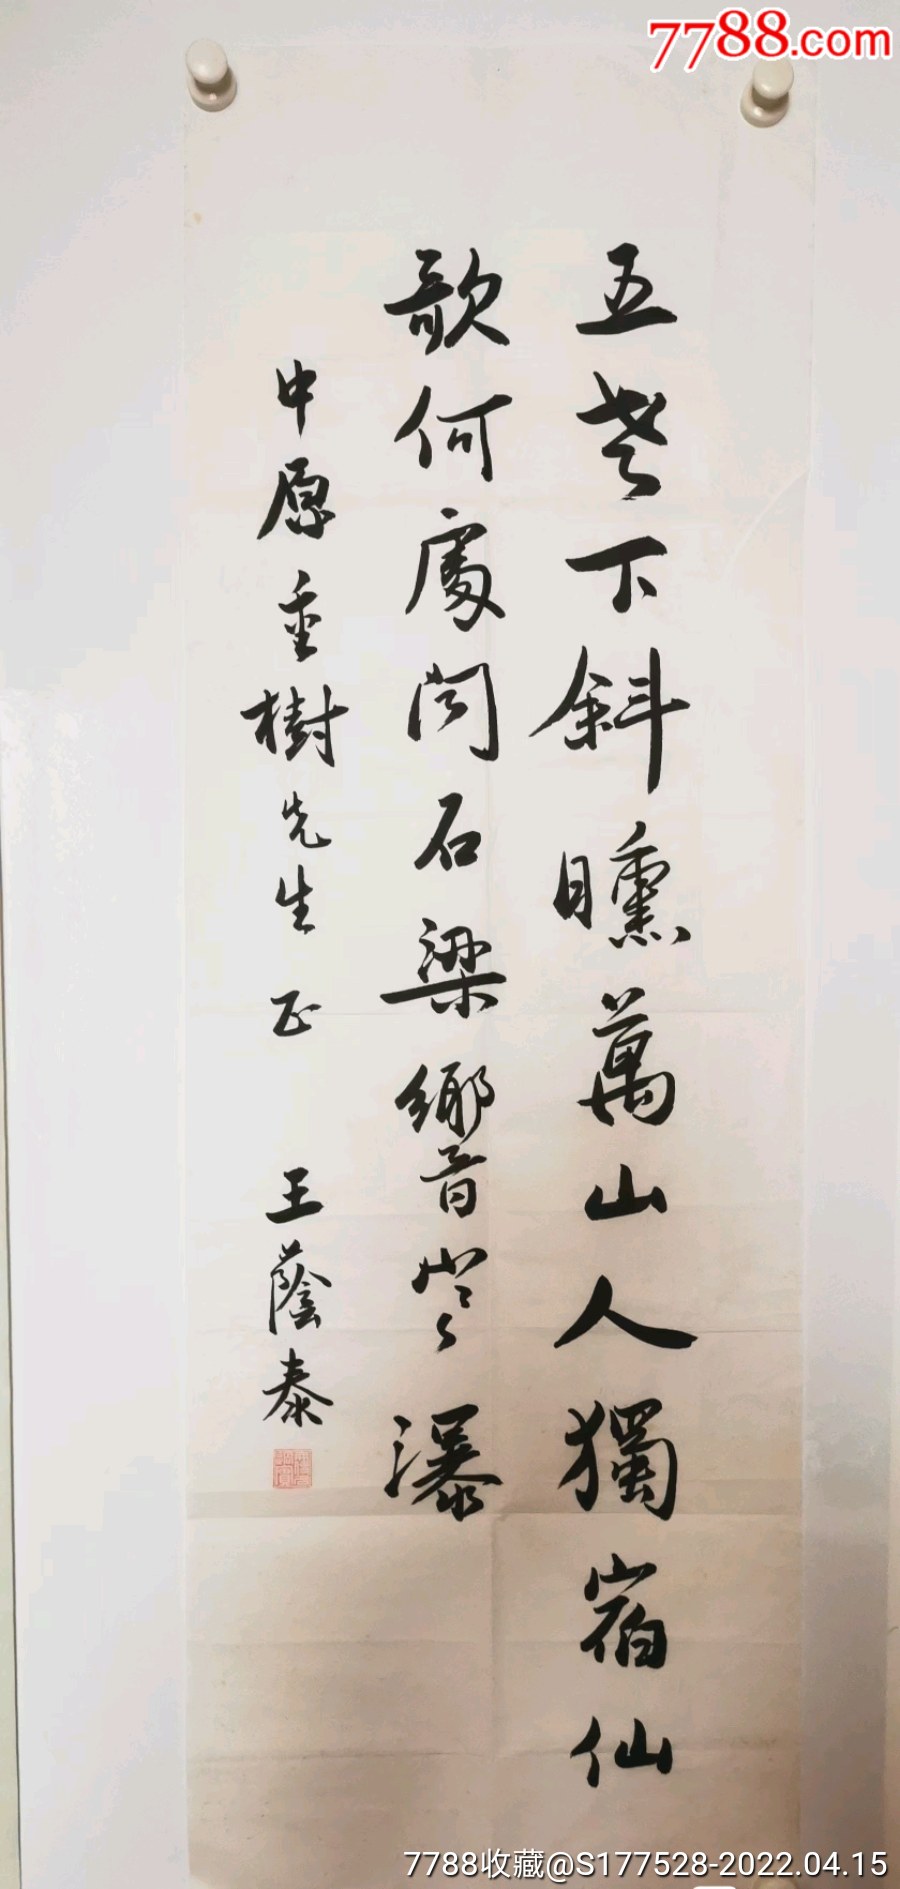 7788.com
五老下斜曛萬山人獨宿仙
歌何處聞石梁響瀑
中原重樹先生正 王蔭泰
7788收藏@S177528-2022.04.15